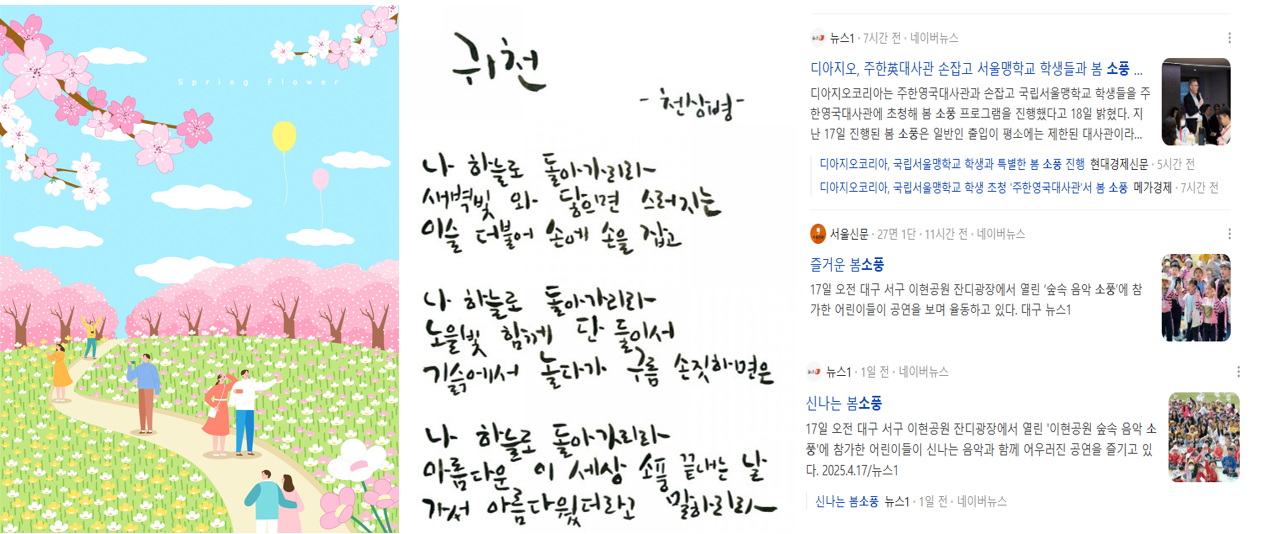 Spring Flower
귀천
- 천상병 -
나 하늘로 돌아가리라
새벽빛 와 닿으면 스러지는
이슬 더불어 손에 손을 잡고
나 하늘로 돌아가리라
노을빛 함께 단 둘이서
기슭에서 놀다가 구름 손짓하면은
나 하늘로 돌아가리라
아름다운 이 세상 소풍 끝내는 날
가서 아름다웠더라고 말하리라
뉴스1 · 7시간 전 · 네이버뉴스
디아지오, 주한英대사관 손잡고 서울맹학교 학생들과 봄 소풍 ...
디아지오코리아는 주한영국대사관과 손잡고 국립서울맹학교 학생들을 주
한영국대사관에 초청해 봄 소풍 프로그램을 진행했다고 18일 밝혔다. 지
난 17일 진행된 봄 소풍은 일반인 출입이 평소에는 제한된 대사관이라...
디아지오코리아, 국립서울맹학교 학생과 특별한 봄 소풍 진행 현대경제신문 · 5시간 전
디아지오코리아, 국립서울맹학교 학생 초청 '주한영국대사관'서 봄 소풍 메가경제 · 7시간 전
서울신문 · 27면 1단 · 11시간 전 · 네이버뉴스
즐거운 봄소풍
17일 오전 대구 서구 이현공원 잔디광장에서 열린 '숲속 음악 소풍'에 참
가한 어린이들이 공연을 보며 율동하고 있다. 대구 뉴스1
뉴스1 · 1일 전 · 네이버뉴스
신나는 봄소풍
17일 오전 대구 서구 이현공원 잔디광장에서 열린 '이현공원 숲속 음악 소
풍'에 참가한 어린이들이 신나는 음악과 함께 어우러진 공연을 즐기고 있
다. 2025.4.17/뉴스1
신나는 봄소풍 뉴스1 · 1일 전 · 네이버뉴스